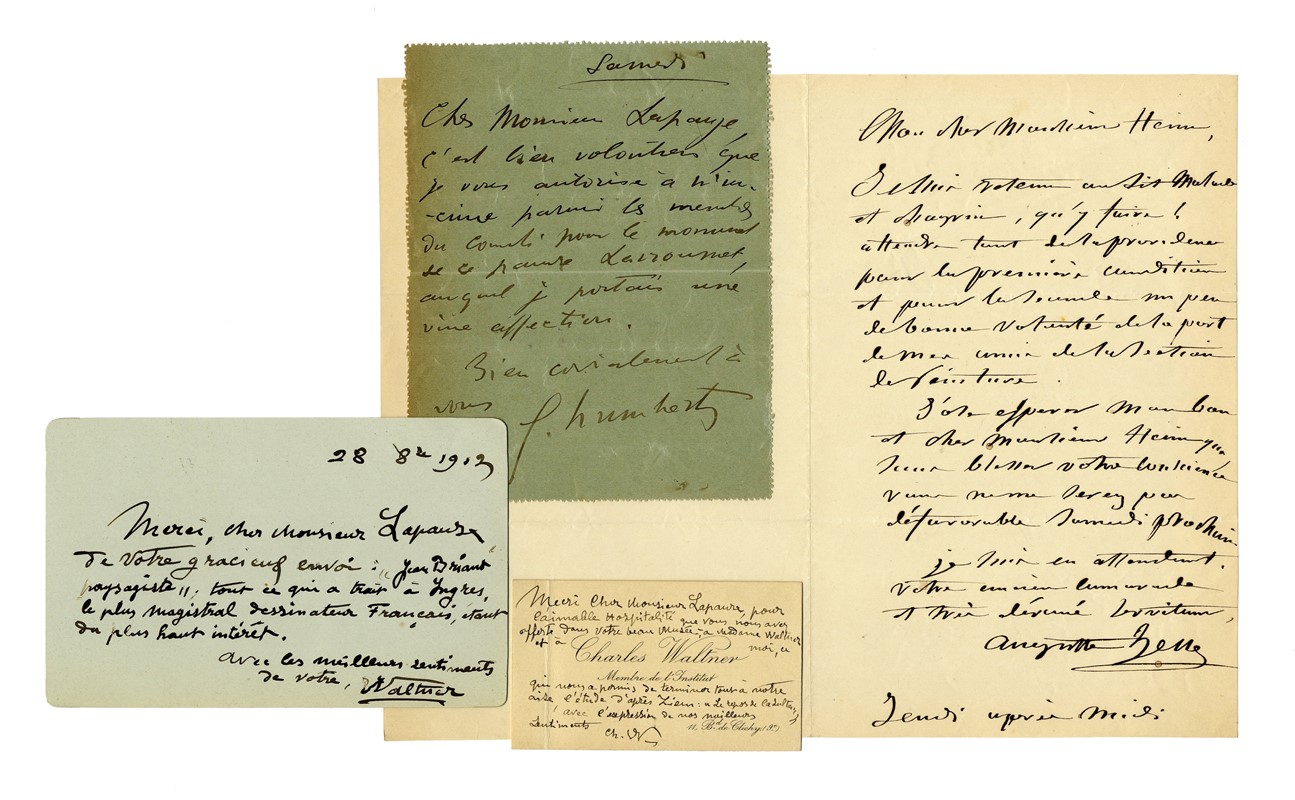 Samedi
Cher Monsieur Lapauze,
c'est bien volontiers que
je vous autorise à m'ins-
-crire parmi les membres
du Comité pour le monument
de ce pauvre Larroumet,
auquel je portais une
vive affection.
Bien cordialement à
vous
f. humbert
28 8re 1912
Merci, cher Monsieur Lapauze
de votre gracieux envoi : "Jean Briant
paysagiste" ; tout ce qui a trait à Ingres,
le plus magistral dessinateur Français, étant
du plus haut intérêt.
avec les meilleurs sentiments
de votre, Waltner
Merci Cher Monsieur Lapauze, pour
l'aimable Hospitalité que vous nous avez
offerte dans votre beau Musée, à Madame Waltner
et à moi, ce
Charles Waltner
Membre de l'Institut
qui nous a permis de terminer tout à notre
aise l'étude d'après Ziem : "Le repos de
avec l'expression de nos meilleurs
sentiments
11, Bd. de Clichy (9e)
Ch. W
Mon cher Monsieur Heim,
Je suis retenu au lit Malade
et chagrin, qu'y faire !
attendre tout de la providence
pour la première condition
et pour la seconde un peu
de bonne volonté de la part
de mes amis de la section
de Peinture.
J'ose espérer Mon bon
et cher Monsieur Heim que
sans blesser votre conscience
vous ne me serez pas
défavorable Samedi prochain.
je suis en attendant.
votre ancien camarade
et très dévoué serviteur,
Auguste Hesse
Jeudi après Midi